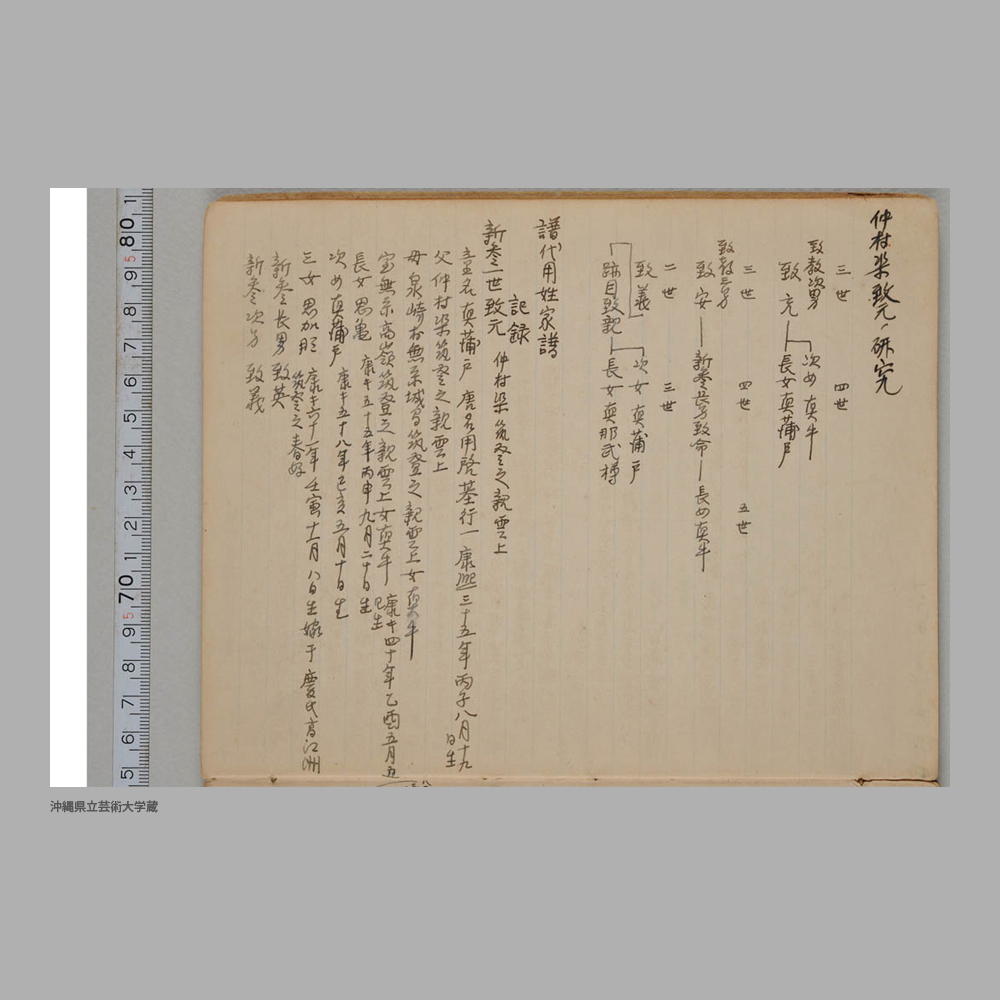 仲村渠致元ノ研究
三世 四世
致教次男
致充 長女真蒲戸
次女真牛
三世 四世 五世
致教三男
致安 新参長男致命 長女真牛
二世 三世
致義 次女真蒲戸
跡目致親 長女真那武樽
譜代用姓家譜
記録
新参一世致元 仲村渠筑登之親雲上
童名真蒲戸 唐名用啓基行一 康熙三十五年丙子八月十九日生
父仲村渠筑登之親雲上
母泉崎村無系城間筑登之親雲上女真牛
室無系高嶺筑登之親雲上女真牛 康キ四十年乙酉五月五
日生
長女思亀 康キ五十五年丙申九月二十日生
次女真蒲戸 康キ五十八年己亥五月十日生
三女思加那 康キ六十一年壬寅十一月八日生嫁于慶氏高江洲
筑登之春好
新参長男 致英
新参次男 致義
80 9 8 7 6 5 4 3 2 1 70 9 8 7 6 5
沖縄県立芸術大学蔵